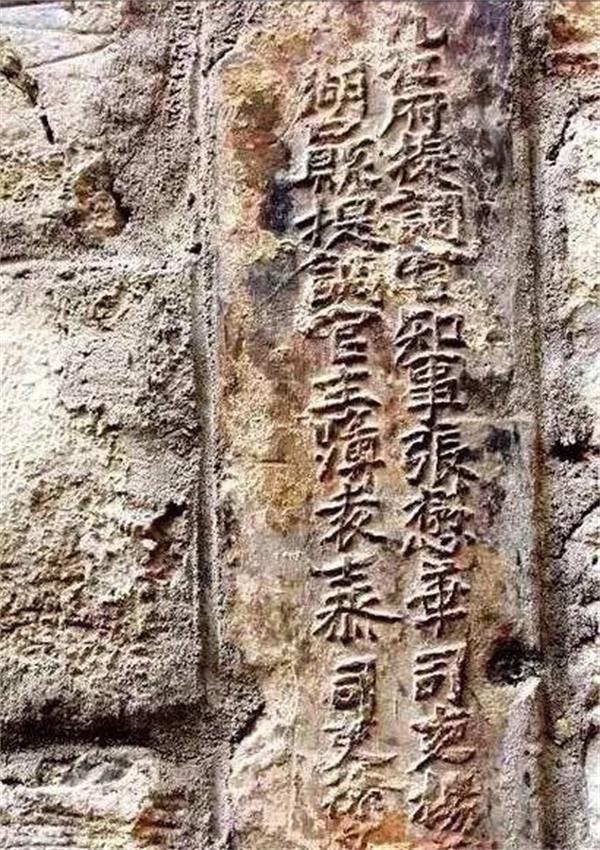 九江府提調官知事張懋華司吏楊
湖口縣提調官主簿袁泰司吏